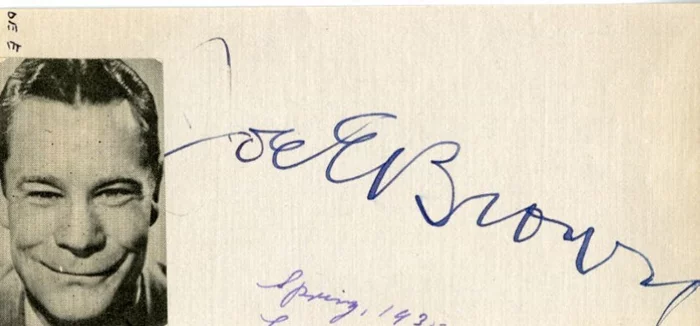 Joe E Brown
Spring, 193